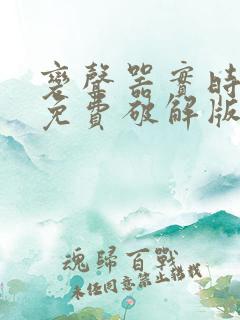 變聲器實時
免費破解版
魂歸百戰
未經同意禁止轉載